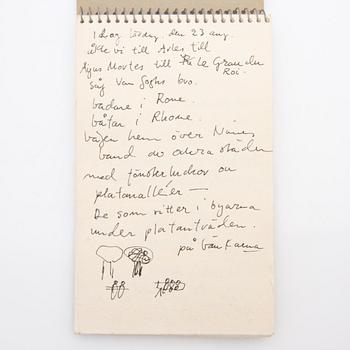 Idag lördag den 23 aug.
åkte vi till Arles till
Aigus Mortes till Le Grau du
Roi.
såg Van Goghs bro.
badare i Rone.
båtar i Rhone.
vägen hem över Nimes
band de andra städen
med fönsterluckor och
platanalléer —
De som sitter i byarna
under platanträden.
på bänkarna